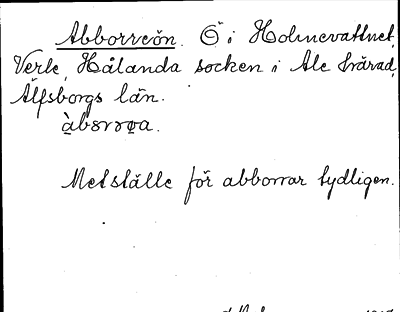 Abborreön. Ö i Holmevattnet,
Verle, Hålanda socken i Ale härad,
Älfsborgs län.
Metställe för abborrar tydligen.